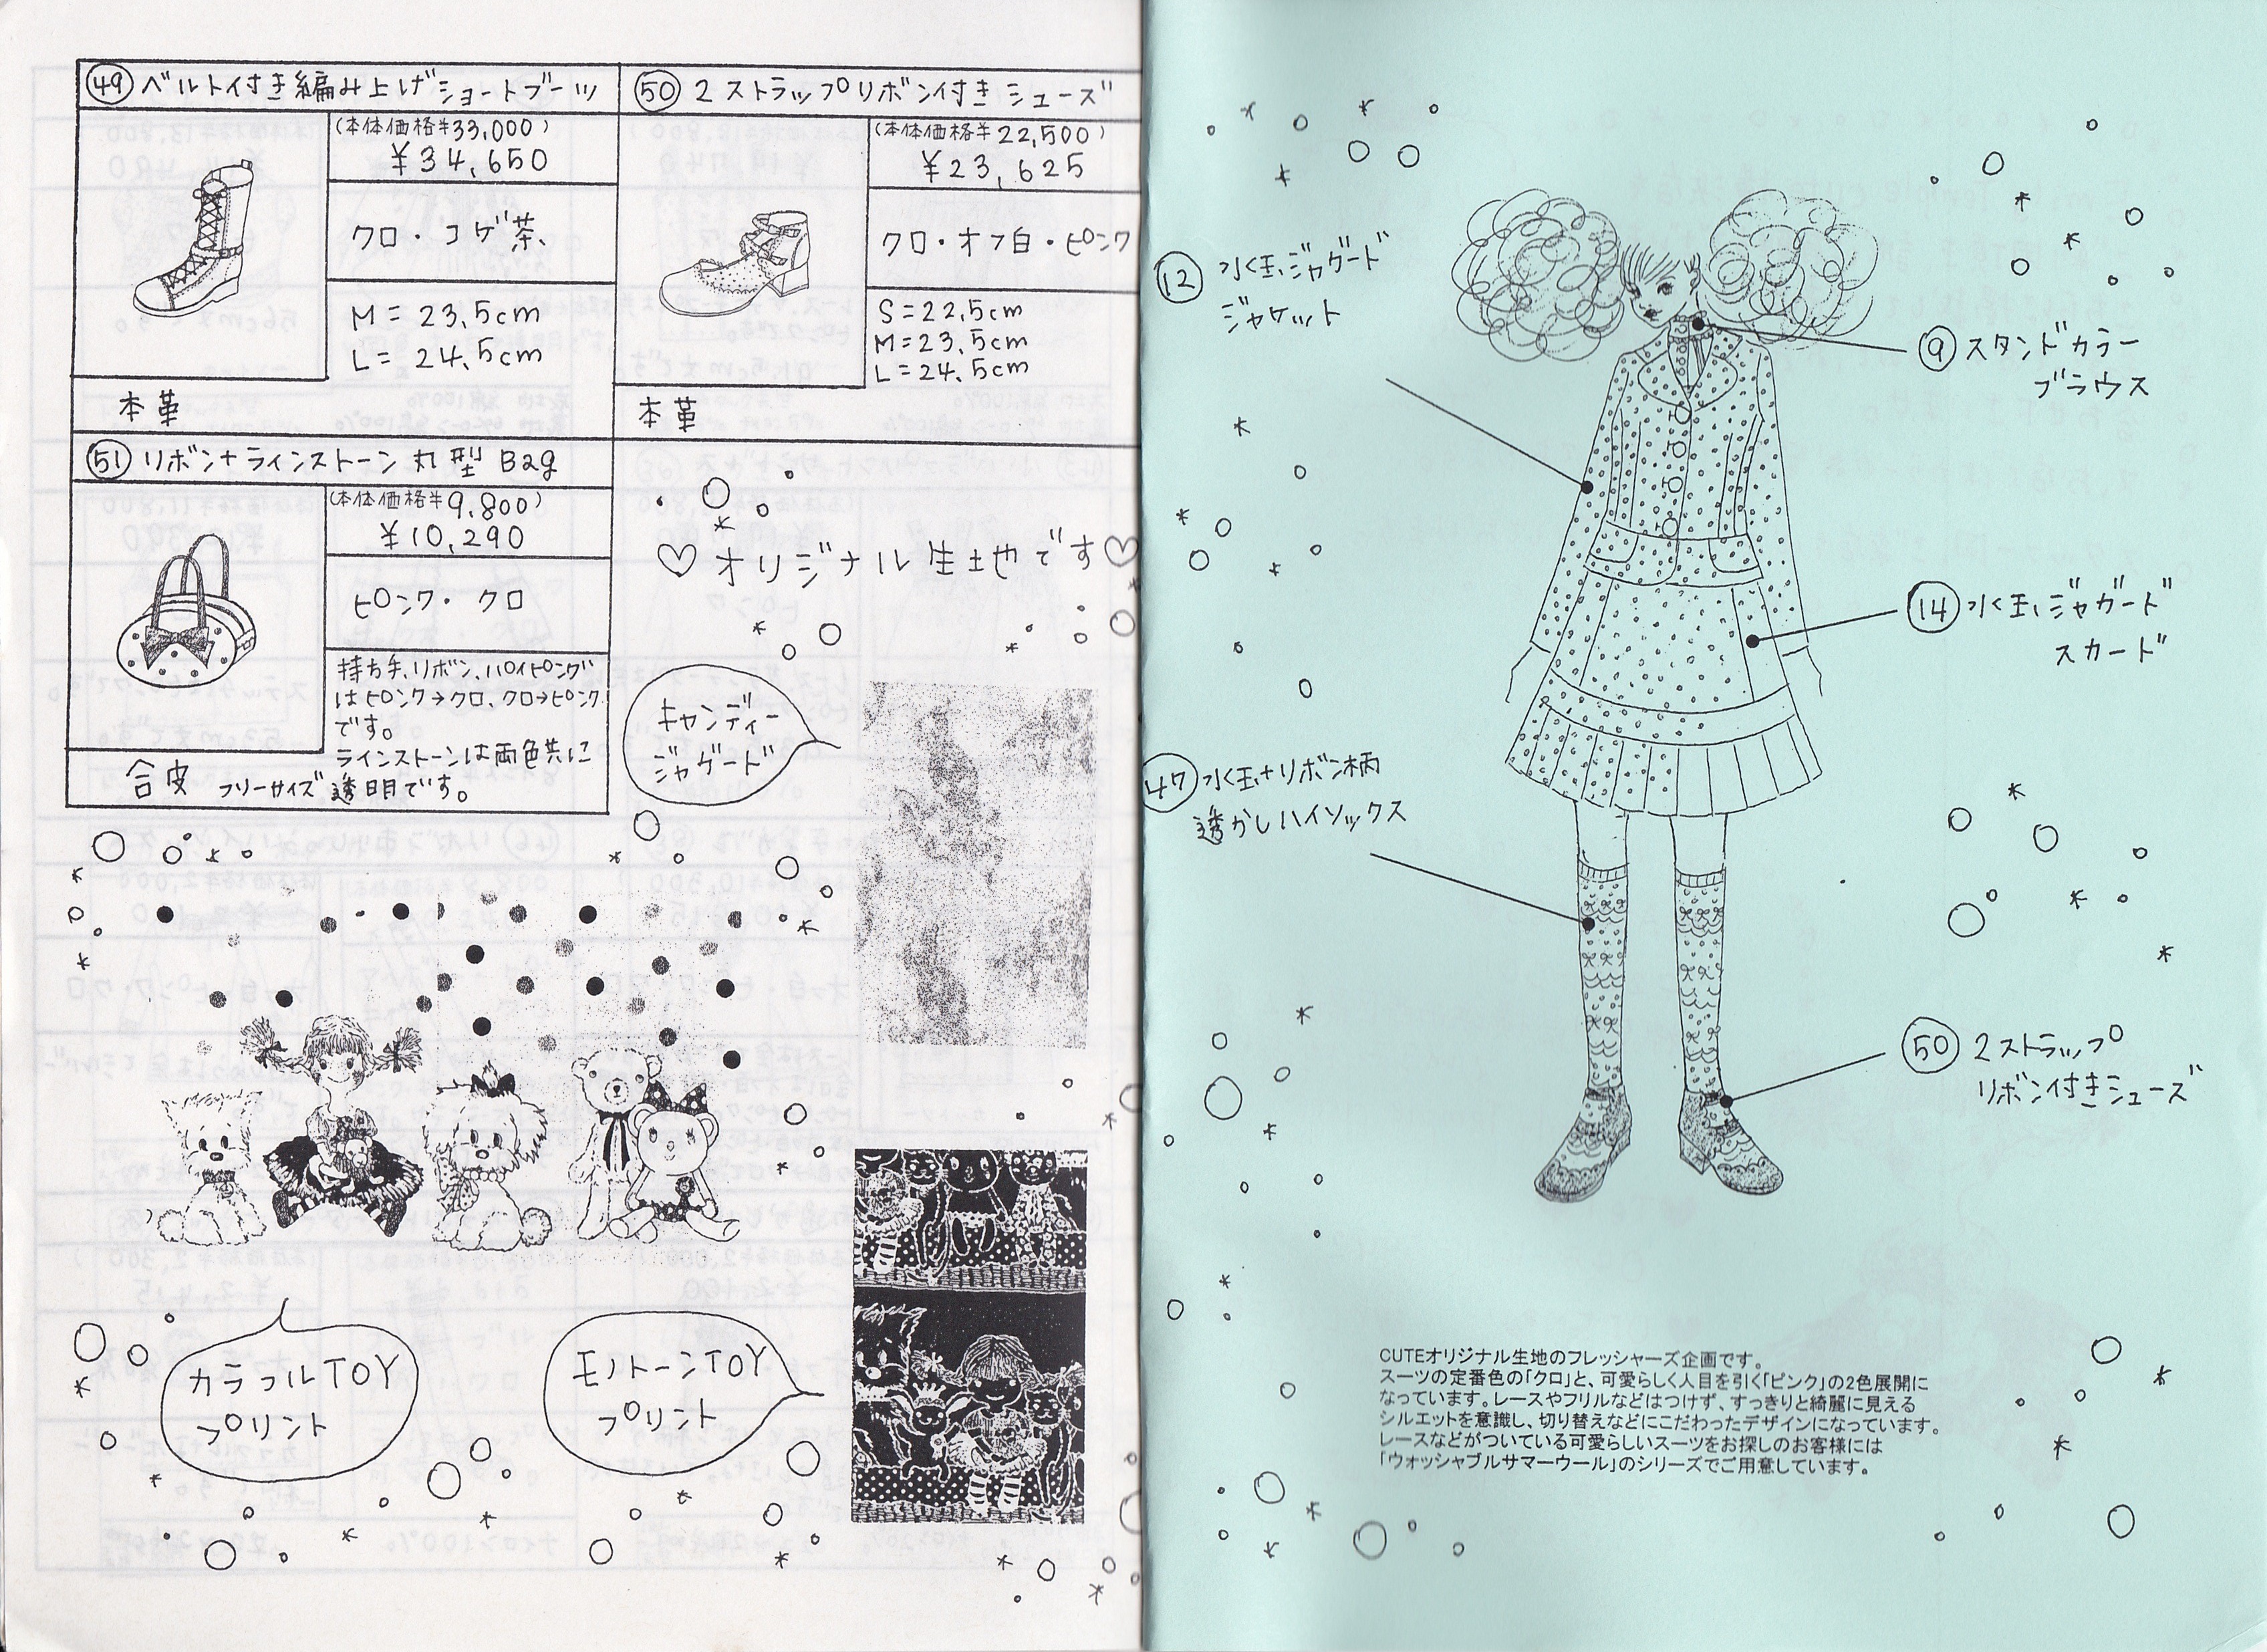 ㊾ ベルト付き編み上げショートブーツ
(本体価格¥33,000)
¥34,650
クロ・コゲ茶
M=23.5cm
L=24.5cm
本革
㊿ 2ストラップリボン付きシューズ
(本体価格¥22,500)
¥23,625
クロ・オフ白・ピンク
S=22.5cm
M=23.5cm
L=24.5cm
本革
51 リボン+ラインストーン丸型Bag
(本体価格¥9,800)
¥10,290
ピンク・クロ
持ち手、リボン、パイピング
はピンク→クロ、クロ→ピンク
です。
ラインストーンは両色共に
透明です。
合皮 フリーサイズ
♡オリジナル生地です♡
キャンディー
ジャガード
カラフルTOY
プリント
モノトーンTOY
プリント
⑫ 水玉ジャガード
ジャケット
⑨ スタンドカラー
ブラウス
⑭ 水玉ジャガード
スカード
㊼ 水玉+リボン柄
透かしハイソックス
㊿ 2ストラップ
リボン付きシューズ
CUTEオリジナル生地のフレッシャーズ企画です。
スーツの定番色の「クロ」と、可愛らしく人目を引く「ピンク」の2色展開に
なっています。レースやフリルなどはつけず、すっきりと綺麗に見える
シルエットを意識し、切り替えなどにこだわったデザインになっています。
レースなどがついている可愛らしいスーツをお探しのお客様には
「ウォッシャブルサマーウール」のシリーズでご用意しています。